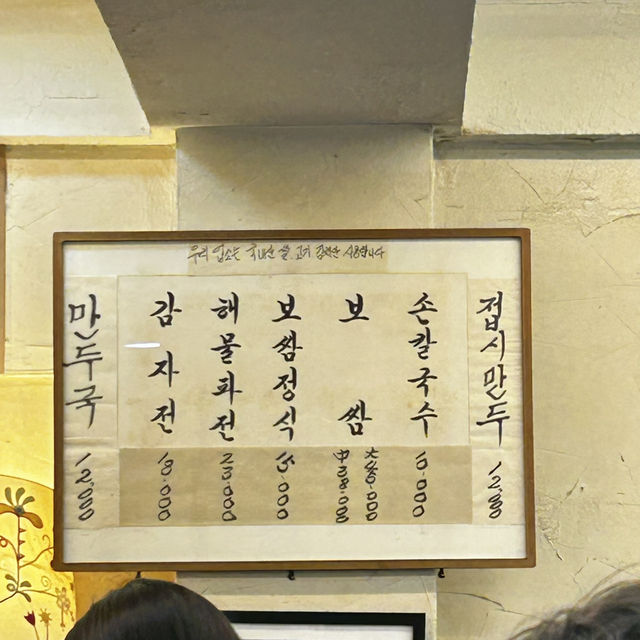 우리 업소는 국내산 쌀, 고기 사용합니다
접시만두 12.000
손칼국수
보쌈 大
中 38.000
보쌈정식 15.000
해물파전 23.000
감자전 18.000
만두국 12.000